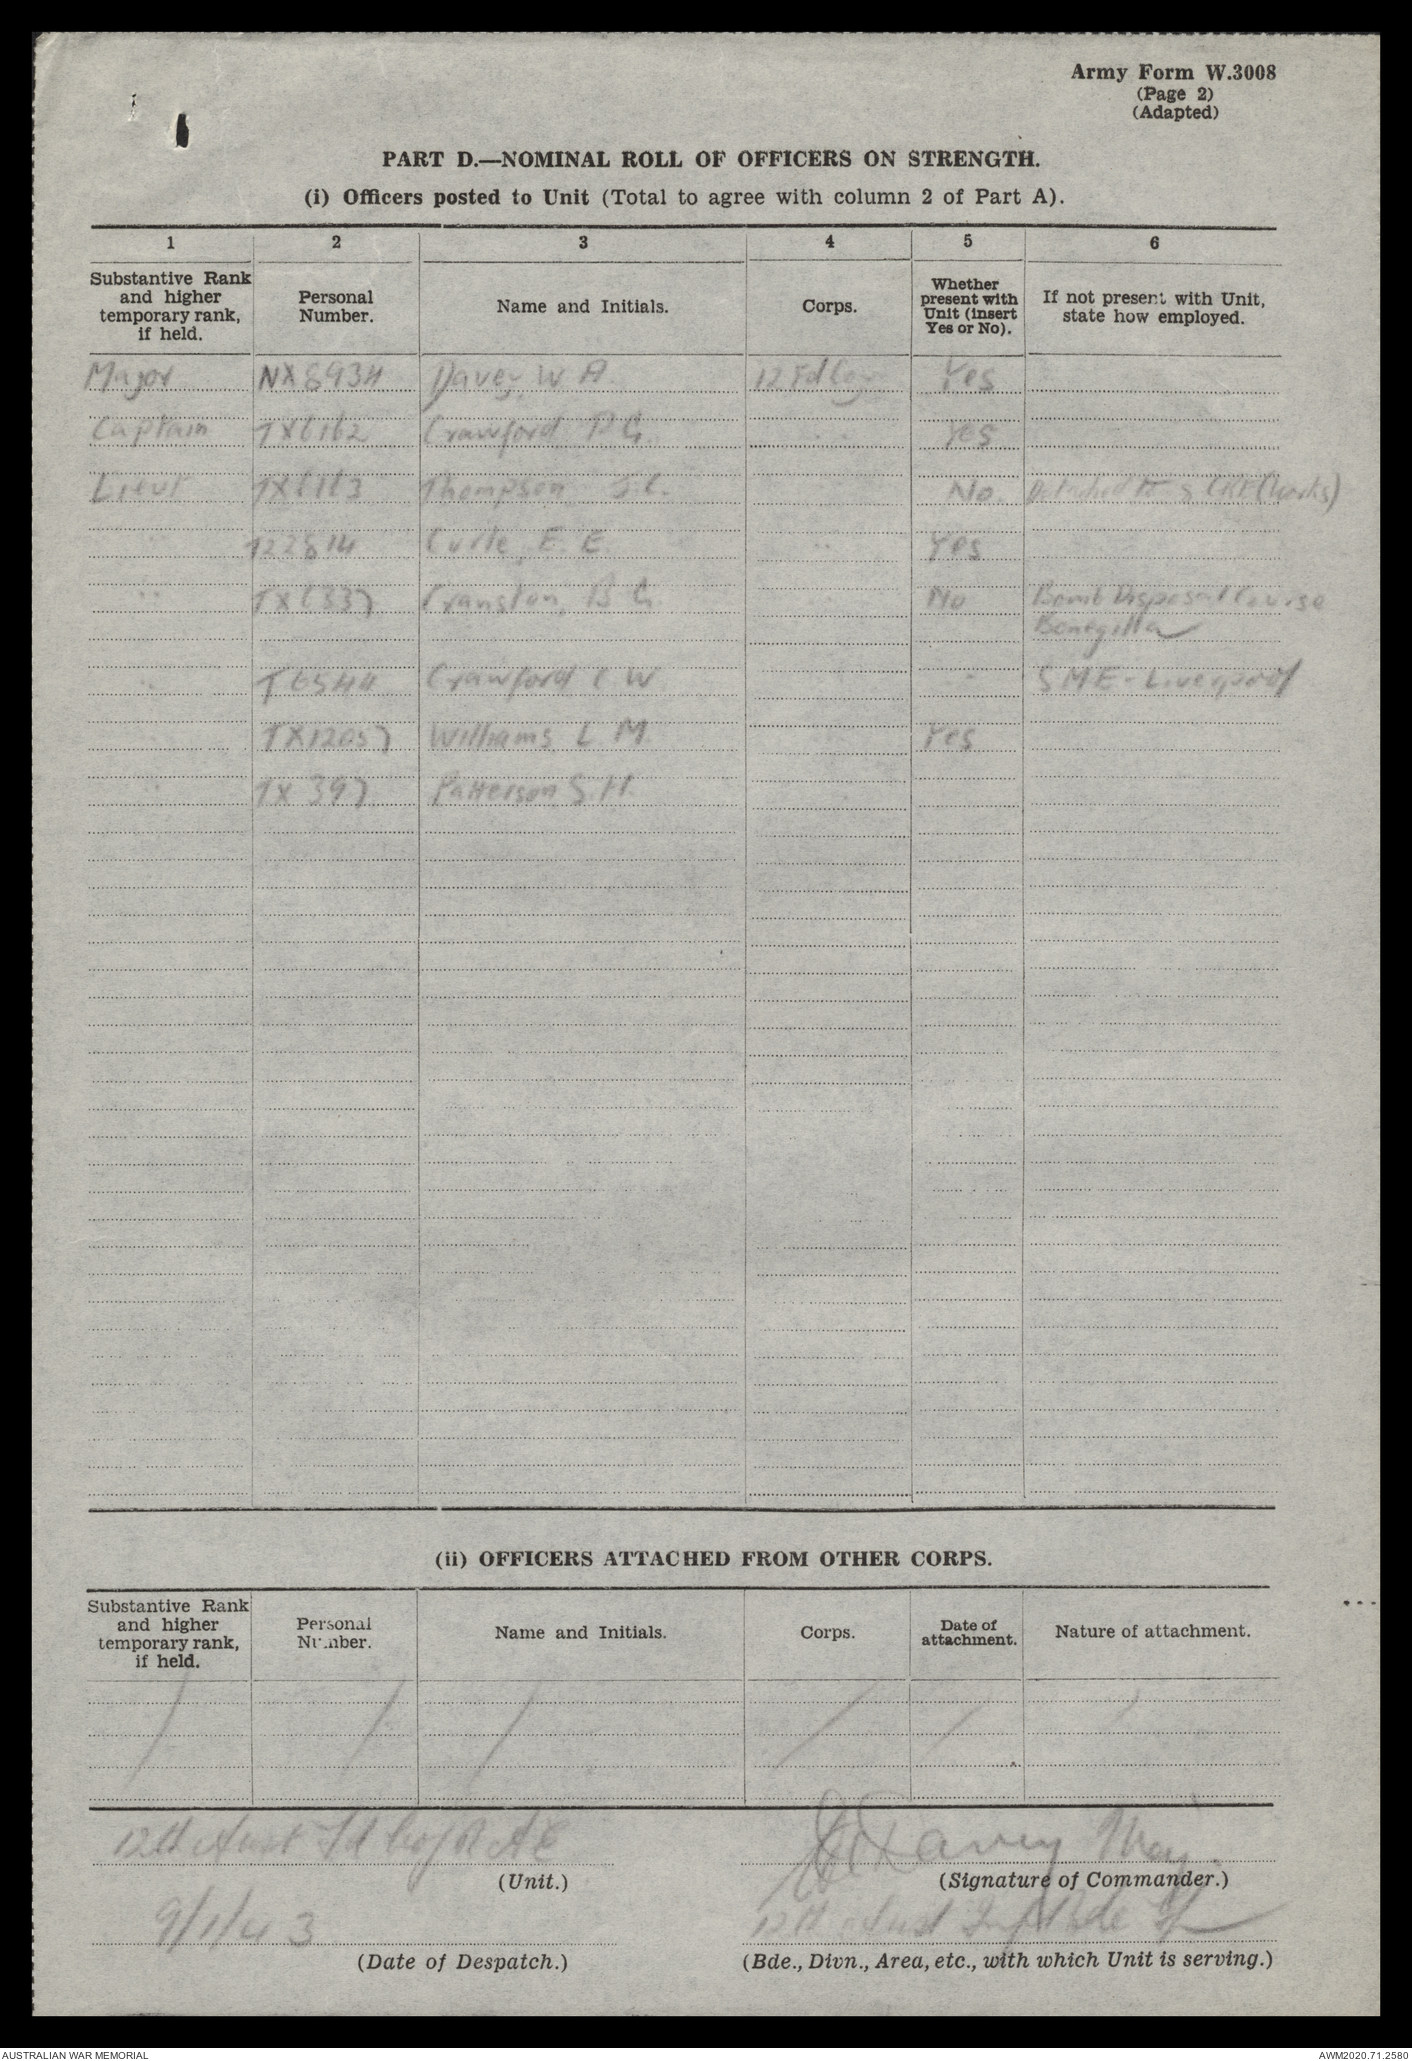 Army Form W.3008
(Page 2)
(Adapted)
PART D.—NOMINAL ROLL OF OFFICERS ON STRENGTH.
(i) Officers posted to Unit (Total to agree with column 2 of Part A).
1 2 3 4 5 6
Substantive Rank and higher temporary rank, if held. Personal Number. Name and Initials. Corps. Whether present with Unit (insert Yes or No). If not present with Unit, state how employed.
Major NX8934 Davey, W A 12 Fd Coy Yes
Captain TX6162 Crawford P G. " " Yes
Lieut TX6163 Thompson J.C. No. Detached to CRE (Works)
122814 Curle, E. E. " Yes
" TX6337 Cranston, B G. No Bomb Disposal Course
Bonegilla
" T6544 Crawford C W " SME - Liverpool
TX12057 Williams L M. Yes
" TX 397 Patterson S. H.
(ii) OFFICERS ATTACHED FROM OTHER CORPS.
Substantive Rank and higher temporary rank, if held. Personal Number. Name and Initials. Corps. Date of attachment. Nature of attachment.
/ / / / / /
12th Aust Fd Coy R A E Davey Maj.
(Unit.) (Signature of Commander.)
9/1/43 12th Aust Inf Bde Gp
(Date of Despatch.) (Bde., Divn., Area, etc., with which Unit is serving.)
AUSTRALIAN WAR MEMORIAL AWM2020.71.2580